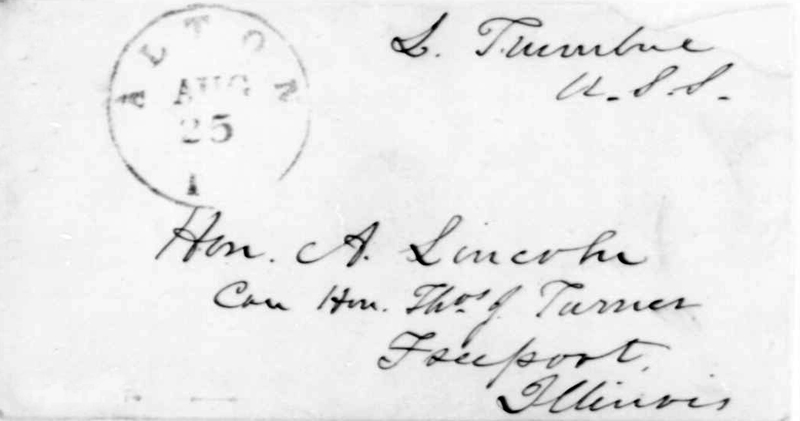 ALTON
AUG
25
L. Trumbul
U.S.S.
Hon. A. Lincoln
Care Hon. Thos J. Turner
Freeport,
Illinois